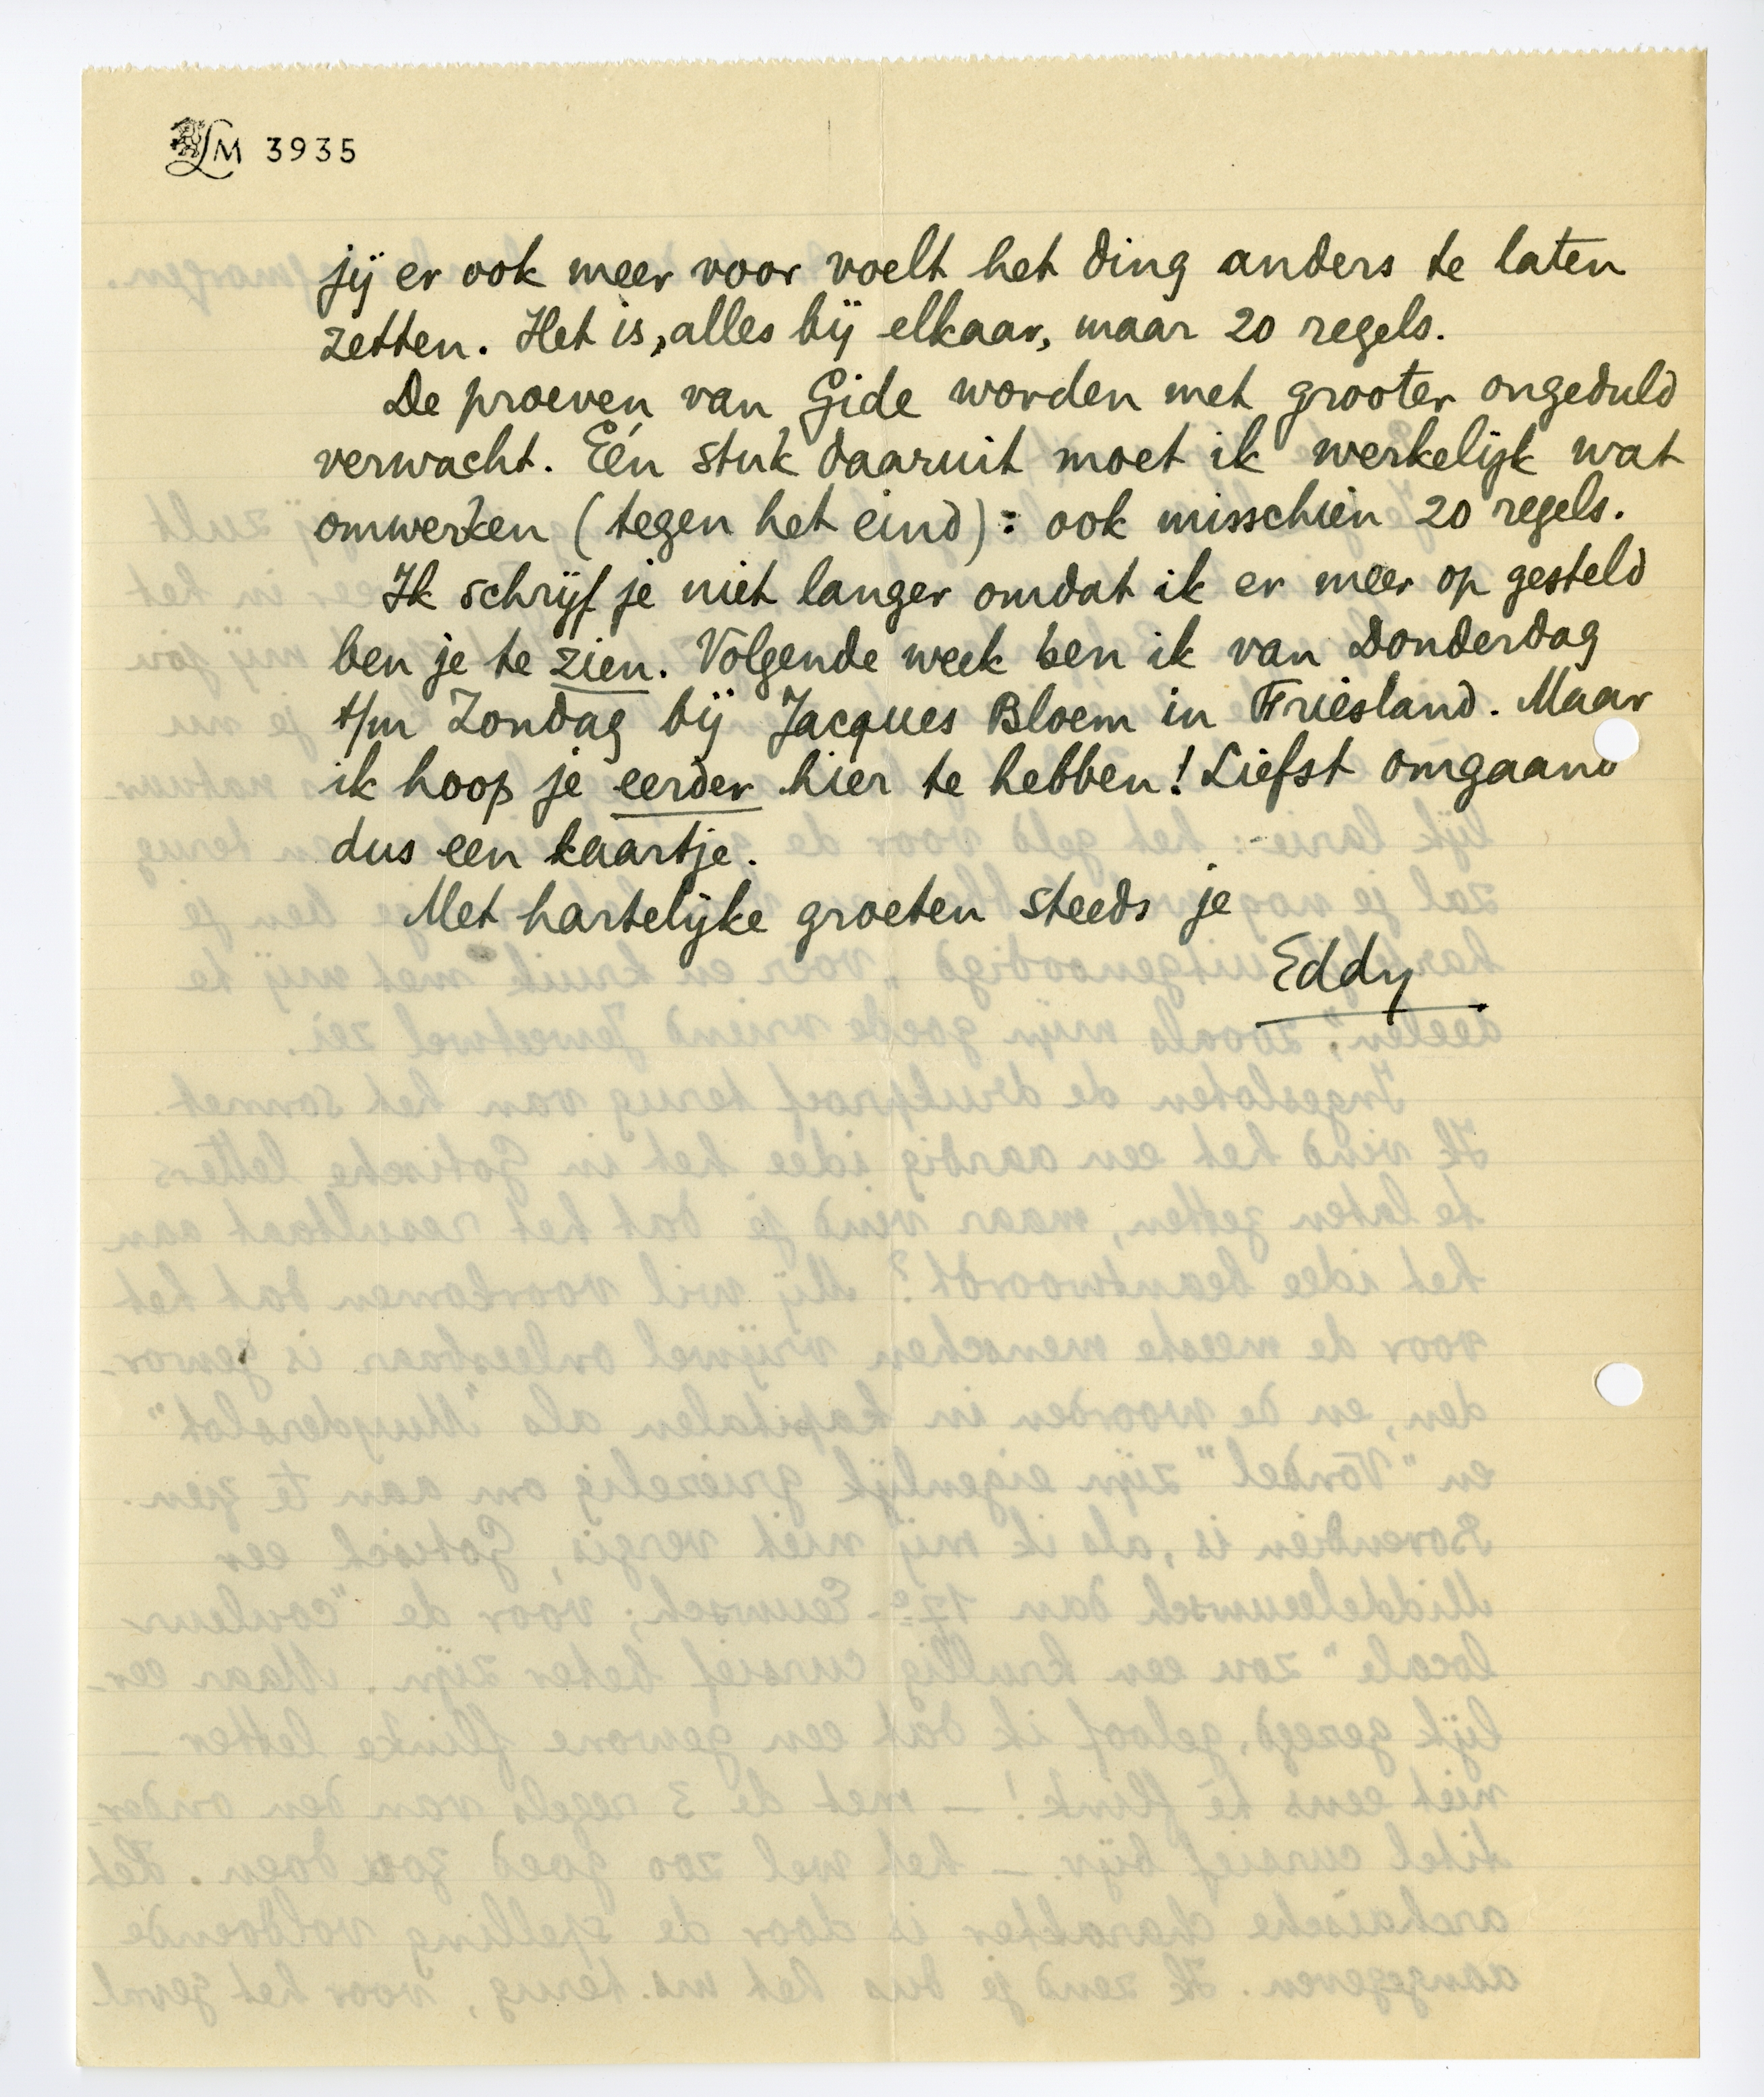 LM 3935
jij er ook meer voor voelt het ding anders te laten
zetten. Het is, alles bij elkaar, maar 20 regels.
De proeven van Gide worden met grooter ongeduld
verwacht. Eén stuk daaruit moet ik werkelijk wat
omwerken (tegen het eind): ook misschien 20 regels.
Ik schrijf je niet langer omdat ik er meer op gesteld
ben je te zien. Volgende week ben ik van Donderdag
t/m Zondag bij Jacques Bloem in Friesland. Maar
ik hoop je eerder hier te hebben! Liefst omgaand
dus een kaartje.
Met hartelijke groeten steeds je
Eddy